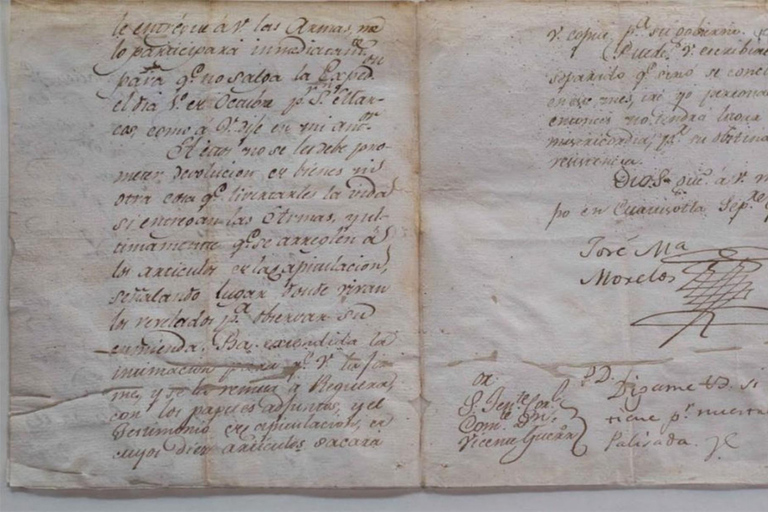 le entregue á V. las Armas, me
lo participará inmediatamte
para qe. no salga la Expedon
el dia 1º. de Octubre pr. Sn. Mar-
cos, como á V. dije en mi antor.
no se les debe pro-
meter devolucion de bienes ni
otra cosa qe. livertarles la vida
si entregan las Armas, y ul-
timamente qe. se arreglen á
los articulos de la Capitulacion,
señalando lugar donde vivan
los revelados pa. observar su
enmienda. Va extendida la
intimacion para qe. V. la fir-
me, y se la remita á Reguera,
con los papeles adjuntos, y el
Testimonio de Capitulacion, de
cuyos diez articulos sacará
V. copia pa. su govierno.
Puede V. escribir
separarlo qe. si no se
en este mes, iré yo
entonces no tendra lugar
misericordia, pr. su obstina
resistencia.
Dios gue. á V. m
po en Cuautotla Sepe.
José Ma
Morelos
or
S. Tente. Corl.
Comte. Dn.
Vicente Guerro
P.D. Digame Vd. si
tiene pr. nuestra
Palisada.